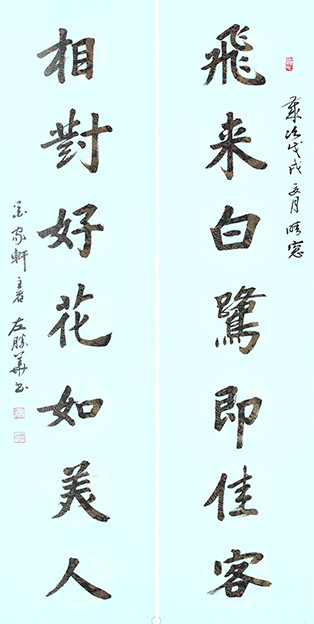 歲次戊戌五月晴窓
飛来白鷺即佳客
相對好花如美人
軒主者左勝華書